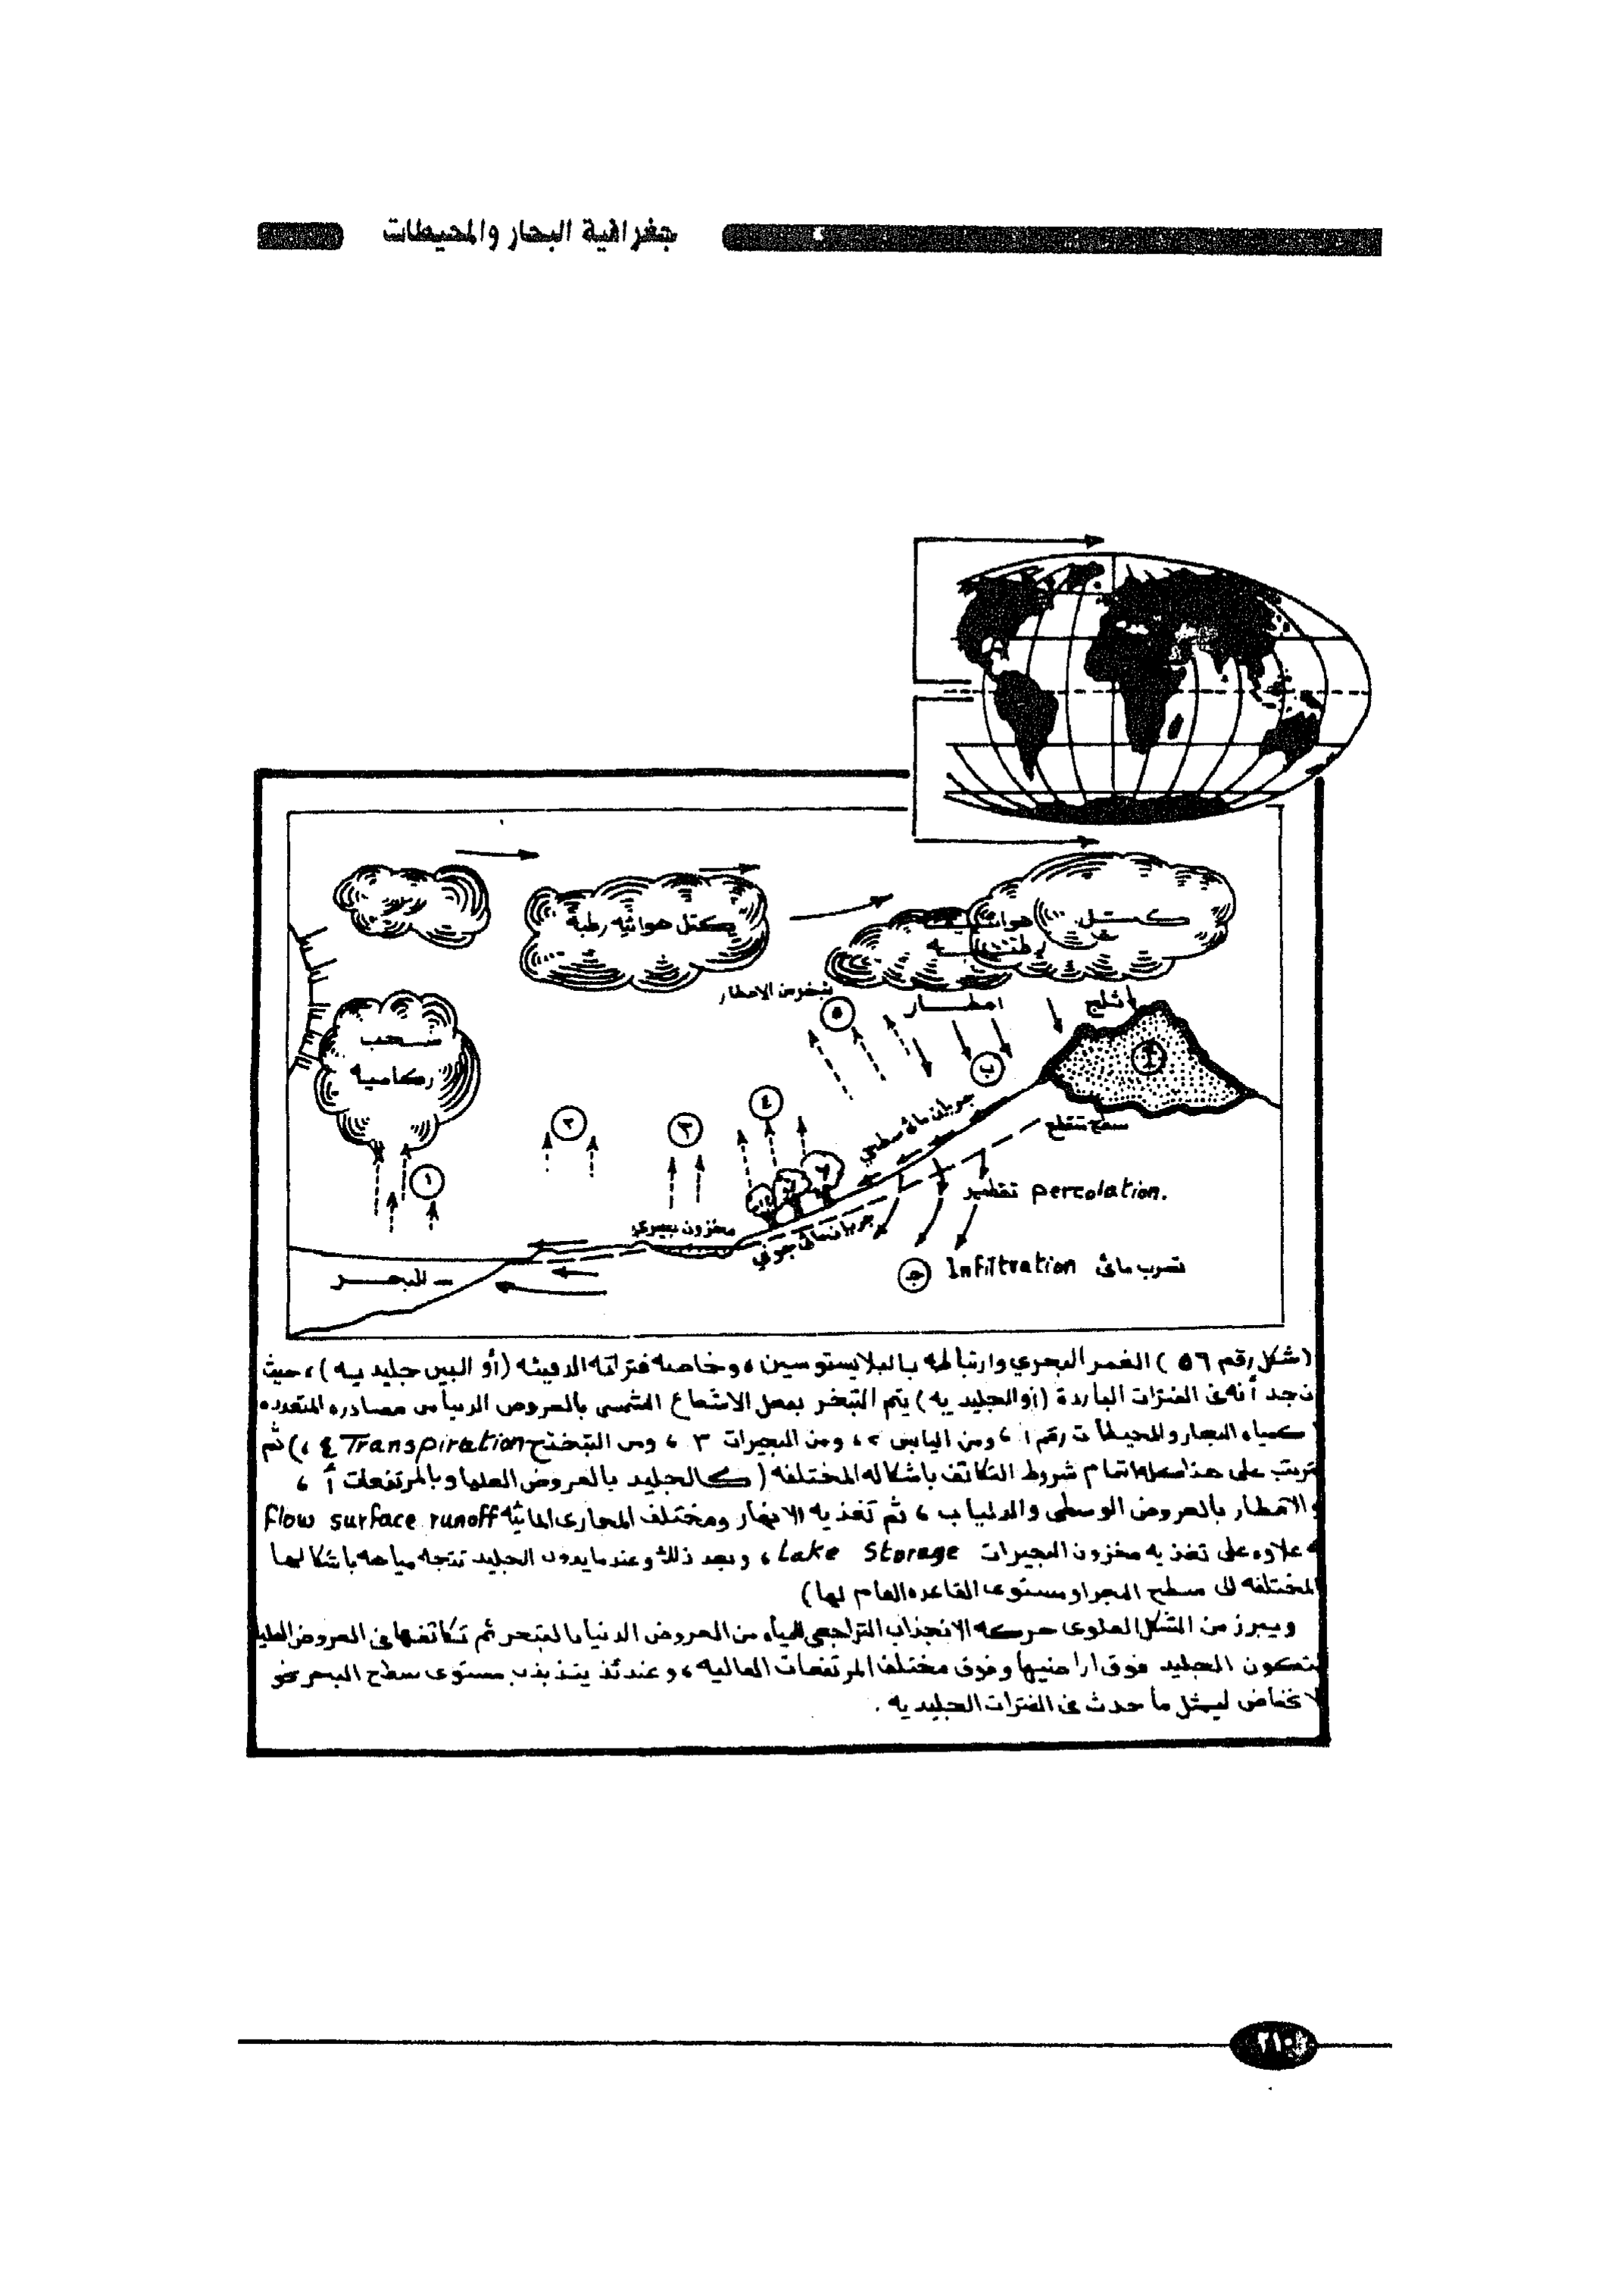 جغرافية البحار والمحيطات
كتل هوائية رطبة
كتل هوائية
رطبة
تبخر من الامطار
٥
امطار
ثلج
سحب
ركامية
أ
ب
٤
٣
٢
١
جريان مائى سطحي
سطح متقطع
تقطير percolation.
مخزون بحيري
جريان مائى جوفي
البحر
ج Infiltration تسرب مائى
(شكل رقم ٥٦ ) الغمر البحري وارتباطه بالبلايستوسين، وخاصه فتراته الدفيئه (أو البين جليديه )، حيث
نجد أنه فى الفترات الباردة (أو الجليديه ) يتم التبخر بفعل الاشعاع الشمسى بالعروض الدنيا من مصادره المتعدده
( كمياه البحار والمحيطات رقم ١ ، ومن اليابس ٢ ، ومن البحيرات ٣ ، ومن التبخنتح Transpiration ٤ ،) ثم
يترتب على هذا اتمام شروط التكاثف باشكاله المختلفه ( كالجليد بالعروض العليا وبالمرتفعات أ ،
والامطار بالعروض الوسطى والدنيا ب ، ثم تغذيه الانهار ومختلف المجارى المائيه flow surface runoff
علاوه على تغذيه مخزون البحيرات Lake Storage ، وبعد ذلك وعندما يذوب الجليد تتجه مياهه باشكالها
المختلفه الى سطح البحر او مستوى القاعده العام لها )
ويبرز من الشكل العلوى حركه الانجذاب التراجعى للمياه من العروض الدنيا بالتبخر ثم تكاثفها فى العروض العليا
لتكون الجليد فوق اراضيها وفوق مختلف المرتفعات العاليه ، وعندئذ يتذبذب مستوى سطح البحر نحو
الانخفاض ليمثل ما حدث فى الفترات الجليديه .
٢١٠